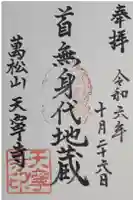 奉拝
令和六年
十月二十六日
首無身代地蔵
萬松山 天寧寺
天寧寺印